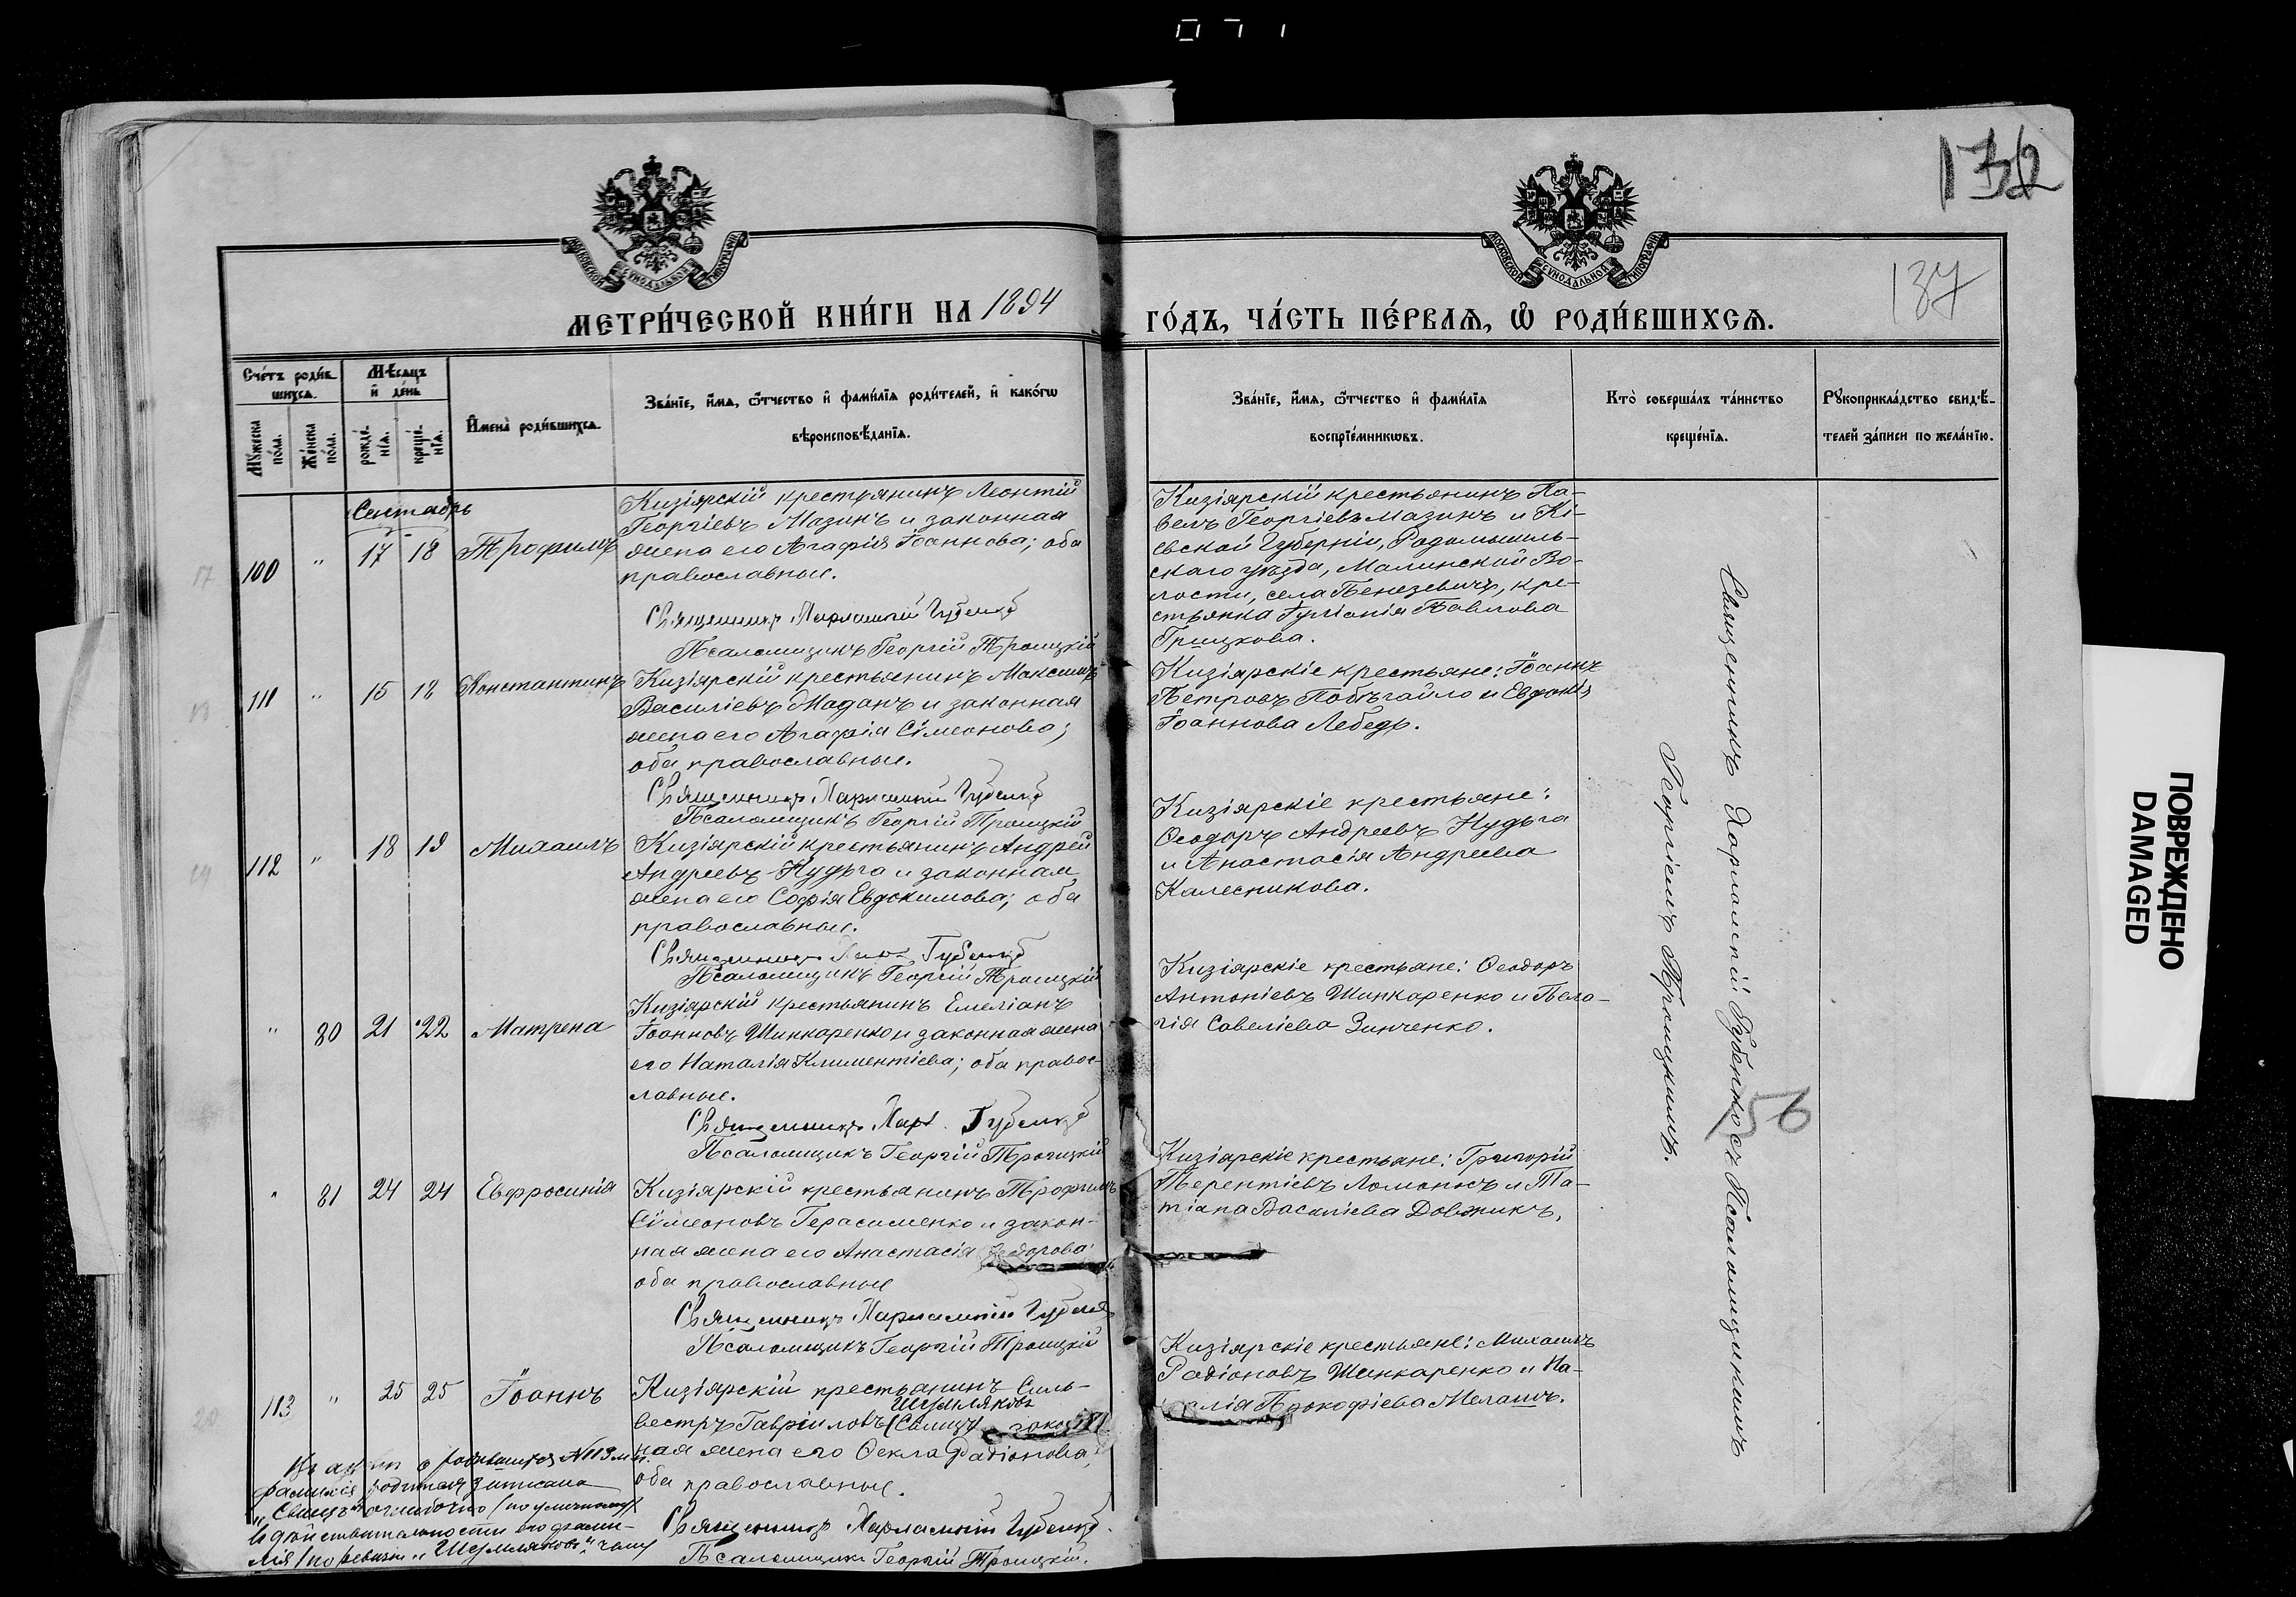 071
132
137
МОСКОВСКОЙ СѴНОДАЛЬНОЙ ТИПОГРАФІИ
МОСКОВСКОЙ СѴНОДАЛЬНОЙ ТИПОГРАФІИ
МЕТРИ́ЧЕСКОЙ КНИ́ГИ НА 1894
ГО́ДЪ, ЧА́СТЬ ПЕ́РВАѦ, Ѡ҆ РОДИ́ВШИХСѦ.
Сче́тъ роди́в
шихсѧ.
Мѣ́сѧцъ
и҆ де́нь
Мꙋ́жеска
по́ла.
Же́нска
по́ла.
рожде́-
нїѧ.
креще́-
нїѧ.
И҆мена̀ роди́вшихсѧ.
Зва́нїе, и҆́мѧ, ѻ҆́тчество и҆ фами́лїѧ роди́телей, и҆ како́гѡ
вѣроисповѣ́данїѧ.
Зва́нїе, и҆́мѧ, ѻ҆́тчество и҆ фами́лїѧ
воспрїе́мникѡвъ.
Кто̀ соверша́лъ та́инство
креще́нїѧ.
Рꙋкоприкла́дство свидѣ́-
телей за́писи по жела́нїю.
Сентябрь
100 " 17 18 Трофимъ
Кизіярскій крестьянинъ Леонтій
Георгіевъ Мазинъ и законная
жена его Агафія Іоаннова; оба
православные.
Священникъ Харлампій Губенко
Псаломщикъ Георгій Троицкій
Кизіярскій крестьянинъ Па-
велъ Георгіевъ Мазинъ и Кі-
евской Губерніи, Радомысль-
скаго уѣзда, Малинской Во-
лости, села Пенезевичъ, кре-
стьянка Іуліанія Павлова
Грицкова.
111 " 15 18 Константинъ
Кизіярскій крестьянинъ Максимъ
Василіевъ Маданъ и законная
жена его Агафія Сѵмеонова;
оба православные.
Священникъ Харлампій Губенко
Псаломщикъ Георгій Троицкій
Кизіярскіе крестьяне: Іоаннъ
Петровъ Побѣгайло и Евдокія
Іоаннова Лебедь.
112 " 18 19 Михаилъ
Кизіярскій крестьянинъ Андрей
Андреевъ Кудьга и законная
жена его Софія Евдокимова; оба
православные.
Священникъ Харл. Губенко
Псаломщикъ Георгій Троицкій
Кизіярскіе крестьяне:
Ѳеодоръ Андреевъ Кудьга
и Анастасія Андреева
Калесникова.
" 80 21 22 Матрена
Кизіярскій крестьянинъ Емеліанъ
Іоанновъ Шинкаренко и законная жена
его Наталія Климентіева; оба правос-
лавные.
Священникъ Харл. Губенко
Псаломщикъ Георгій Троицкій
Кизіярскіе крестьяне: Ѳеодоръ
Антоніевъ Шинкаренко и Пела-
гія Савеліева Зинченко.
" 81 24 24 Евфросинія
Кизіярскій крестьянинъ Трофимъ
Сѵмеоновъ Герасименко и закон-
ная жена его Анастасія
оба православные
Священникъ Харлампій Губенко
Псаломщикъ Георгій Троицкій
Кизіярскіе крестьяне: Григорій
Терентіевъ Ломоносъ и Та-
тіана Василіева Довжикъ.
113 " 25 25 Іоаннъ
Кизіярскій крестьянинъ Силь-
Шумляковъ
вестръ Гавріиловъ (Свищъ) и закон-
ная жена его Ѳекла Радіонова;
оба православные.
Священникъ Харлампій Губенко.
Псаломщикъ Георгій Троицкій.
Кизіярскіе крестьяне: Михаилъ
Радіоновъ Шинкаренко и На-
талія Прокофіева Мелашъ.
Въ актѣ о родившемся №113 м. п.
фамилія родителя записана
"Свищъ" ошибочно (по уличному)
въ дѣйствительности его фами-
лія (по ревизіи "Шумляковъ",
Священникъ Харлампій Губенко съ Псаломщикомъ
Георгіемъ Троицкимъ.
56
ПОВРЕЖДЕНО
DAMAGED